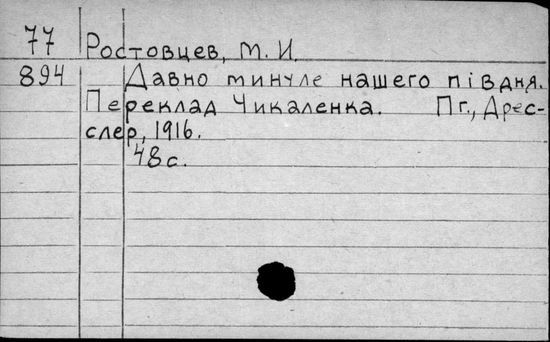 77 Ростовцев, М. И.
894 Давно минуле нашего півдня.
Переклад Чикаленка. Пг., Дрес-
слер, 1916.
48 с.